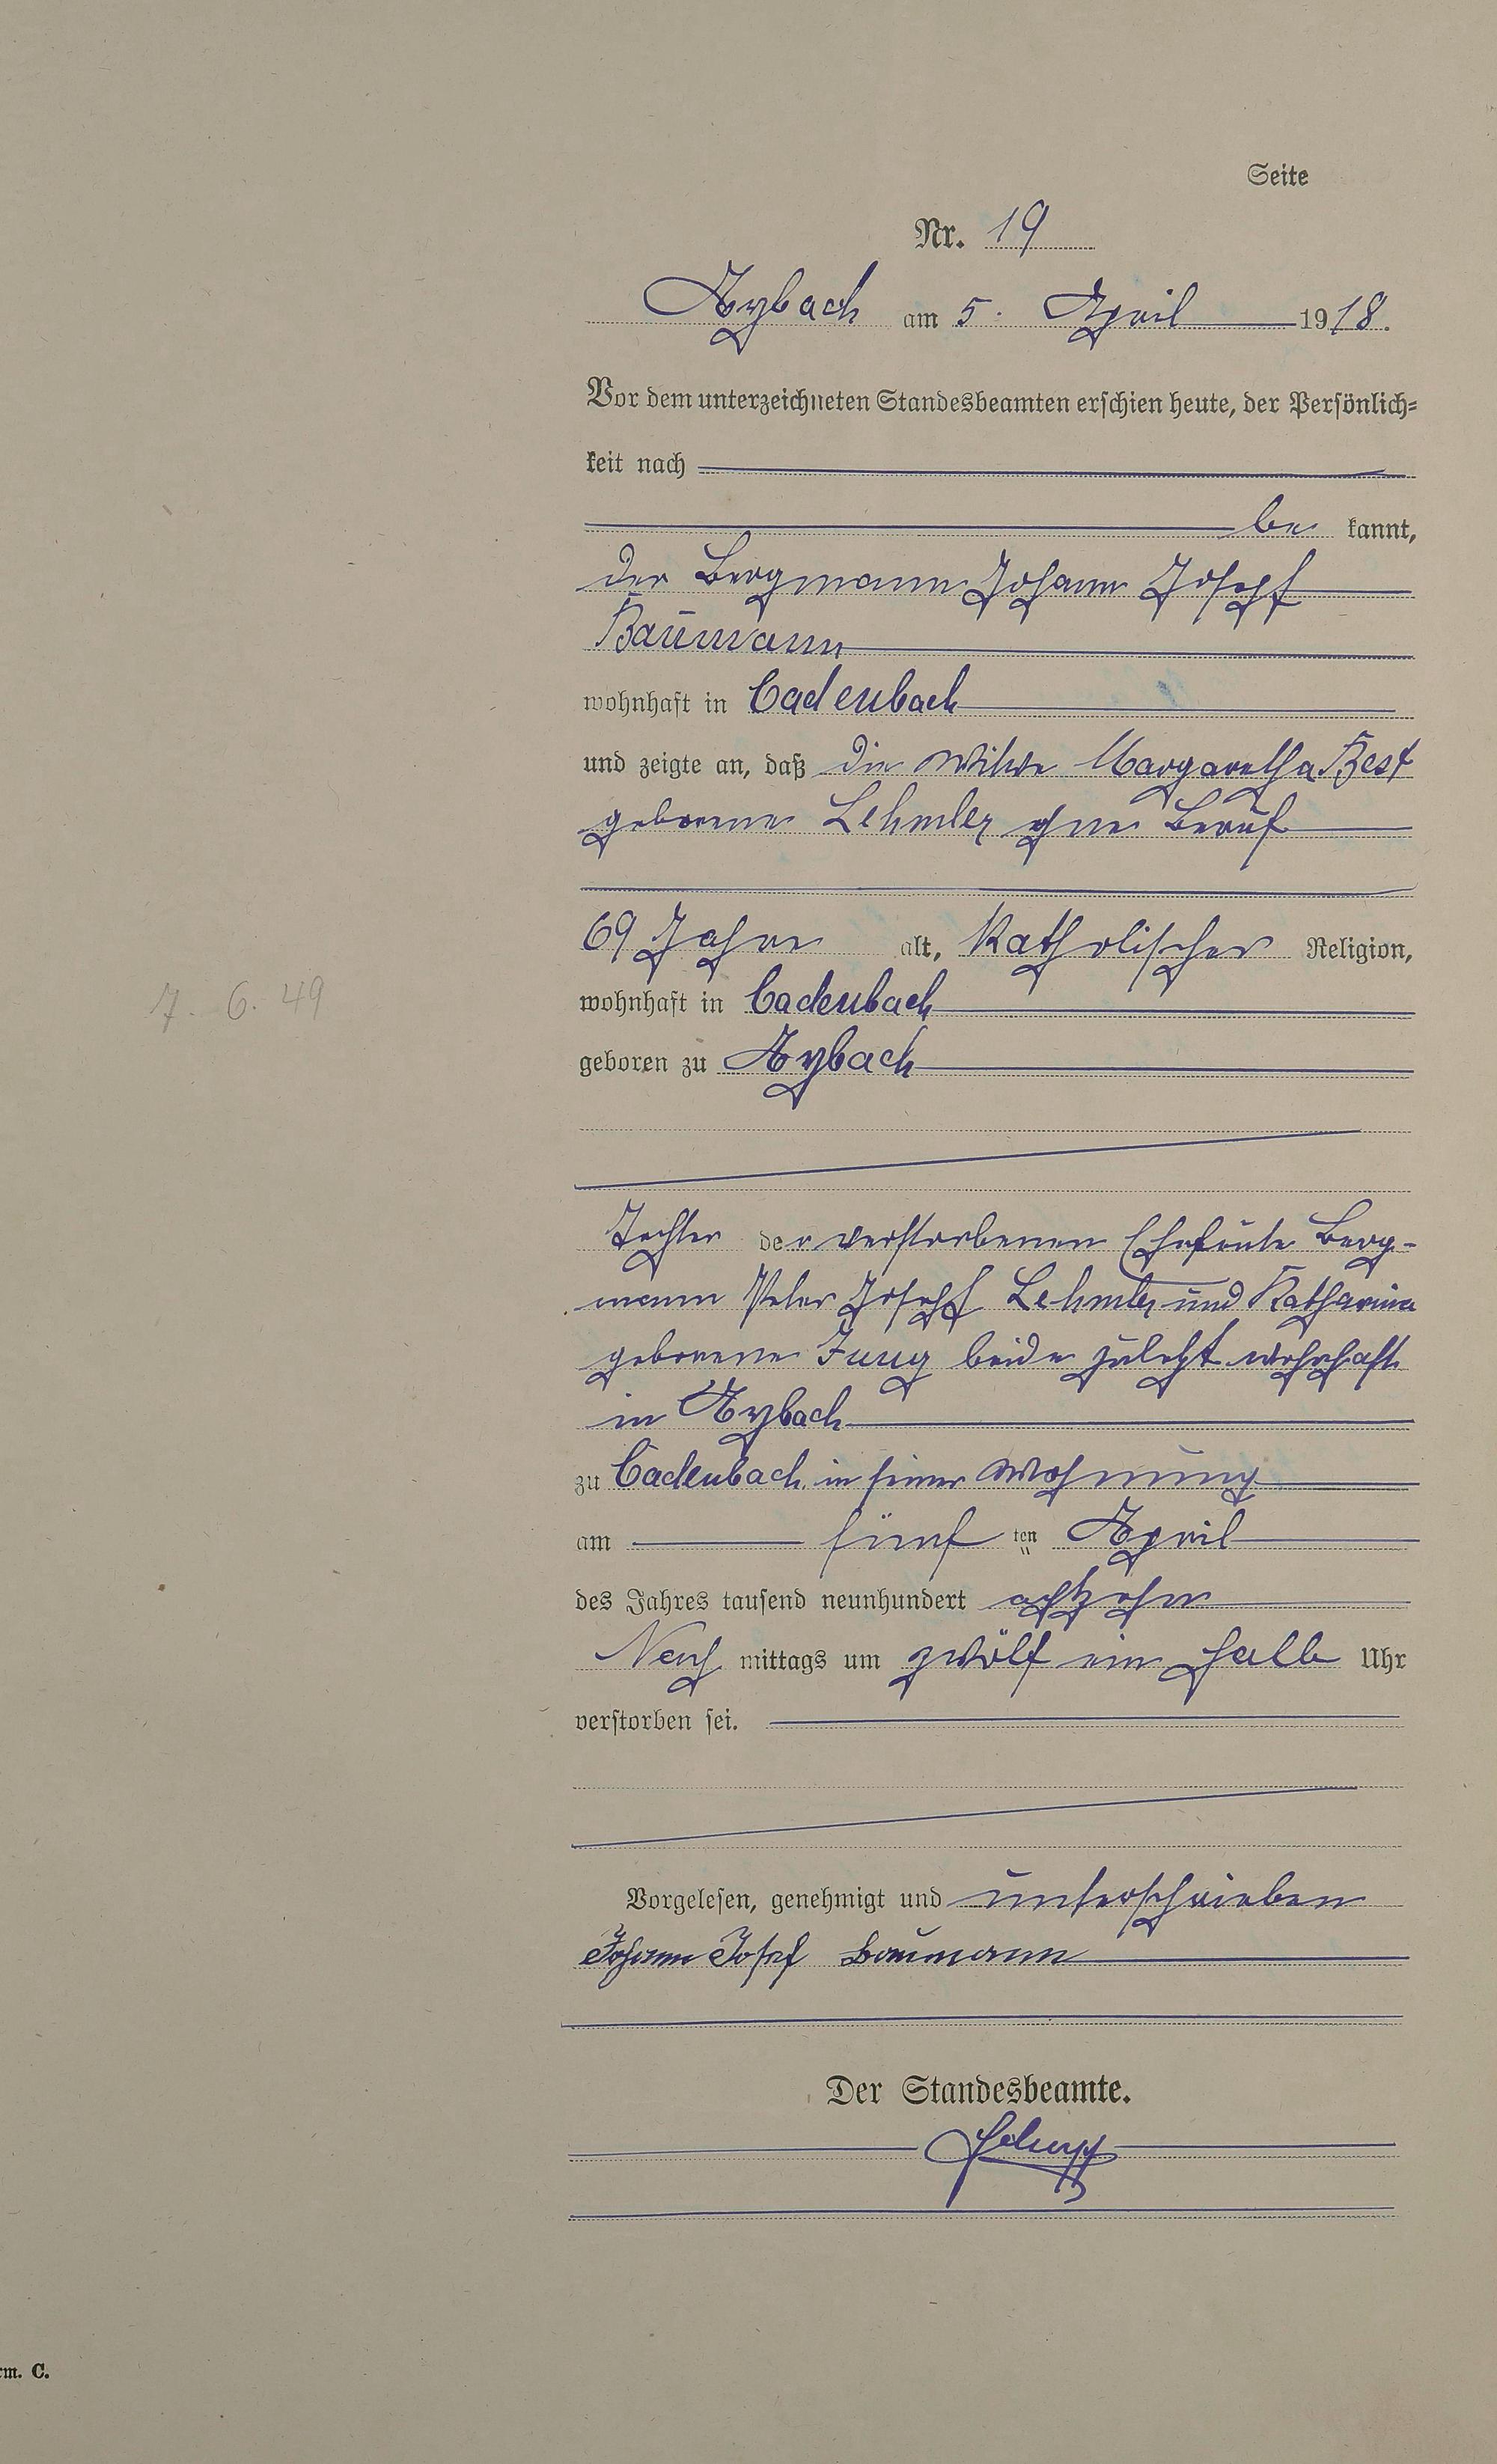 Seite
Nr. 19
Arzbach am 5. April 1918.
Vor dem unterzeichneten Standesbeamten erschien heute, der Persönlich=
keit nach
be kannt,
der Bergmann Johann Joseph
Baumann
wohnhaft in Cadenbach
und zeigte an, daß die Witwe Margaretha Best
geborene Lehmler ohne Beruf
69 Jahre alt, katholischer Religion,
7. 6. 49
wohnhaft in Cadenbach
geboren zu Arzbach
Tochter der verstorbenen Eheleute Berg-
mann Peter Joseph Lehmler und Katharina
geborene Jung beide zuletzt wohnhaft
in Arzbach
zu Cadenbach in seiner Wohnung
am fünf ten April
des Jahres tausend neunhundert achtzehn
Nach mittags um zwölf ein halb Uhr
verstorben sei.
Vorgelesen, genehmigt und unterschrieben
Johann Josef Baumann
Der Standesbeamte.
rm. C.